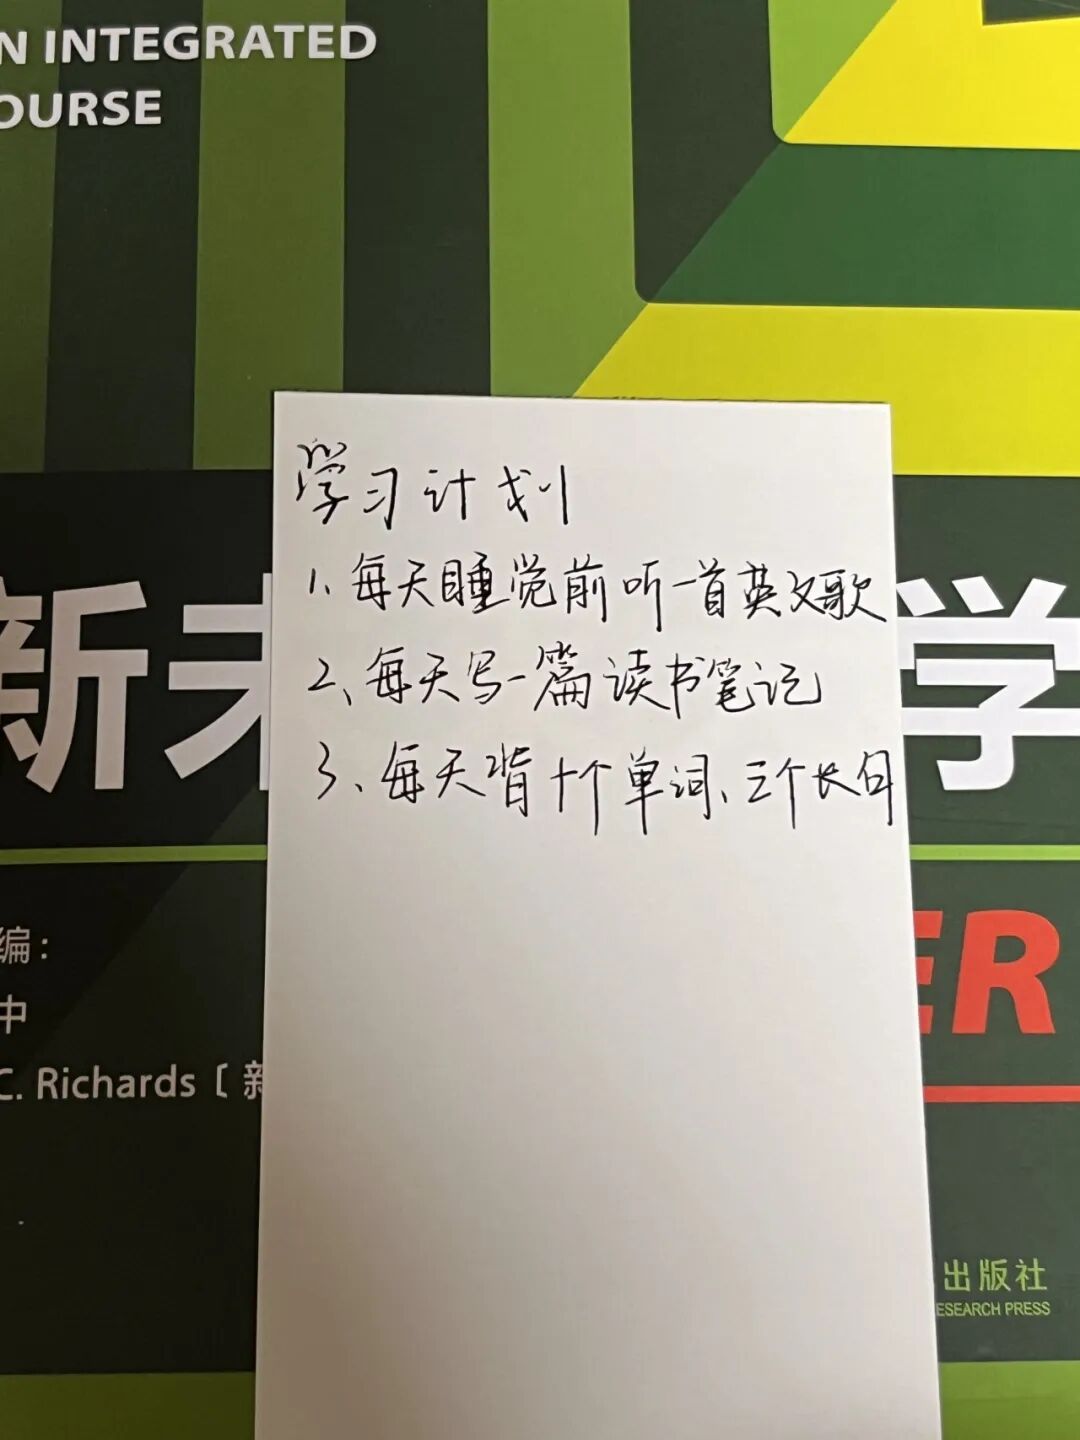 N INTEGRATED
OURSE
学习计划
1、每天睡觉前听一首英文歌
2、每天写一篇读书笔记
3、每天背十个单词、三个长句
新未 学
编：
中
C. Richards〔新
ER
出版社
ESEARCH PRESS